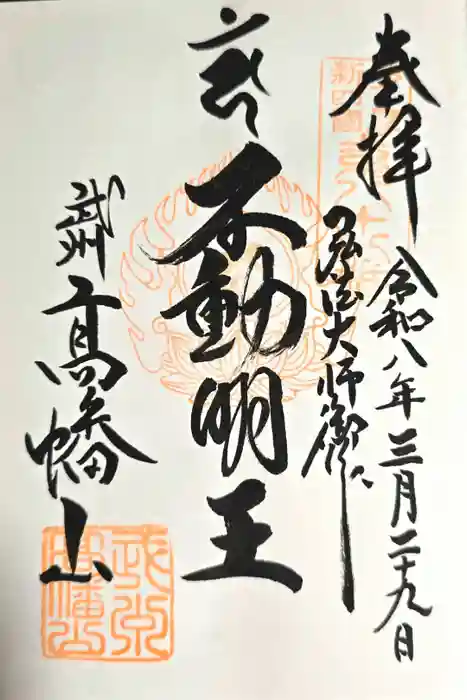 奉拝
令和八年三月二十九日
弘法大師御作
不動明王
武州
高幡山